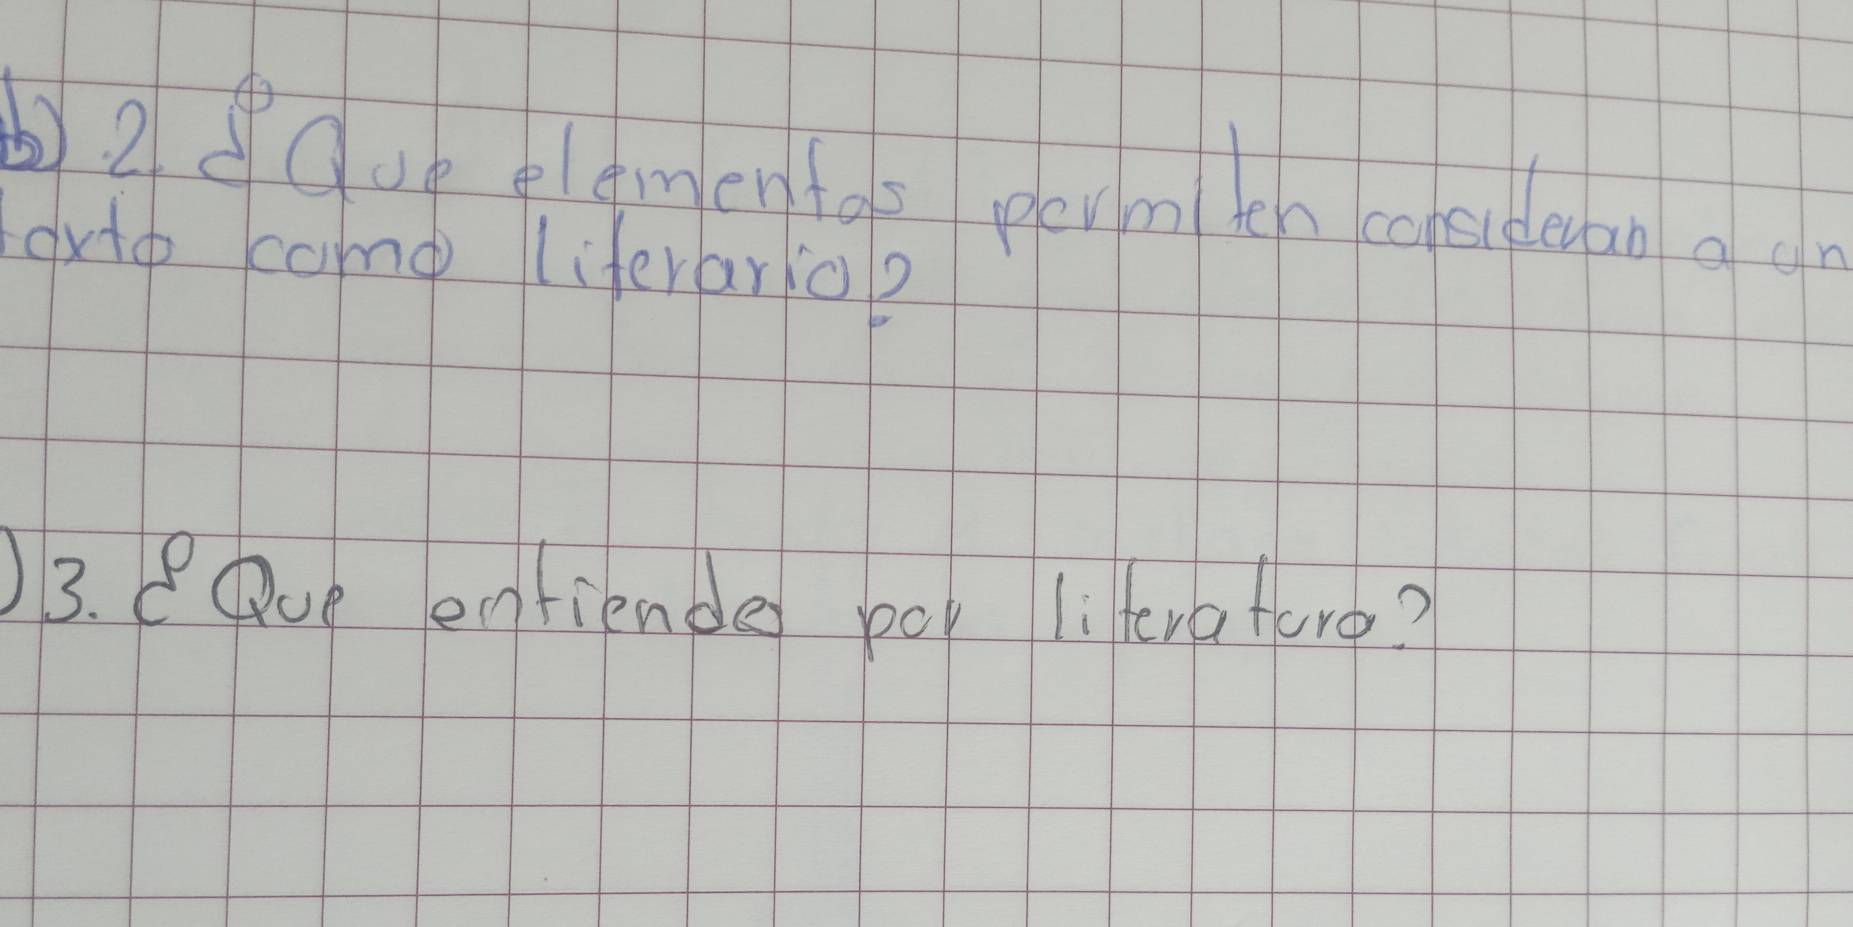 b) 2. ¿Que elementos permiten considerar a un
texto como literario?
) 3. ¿Que entiende por literatura?